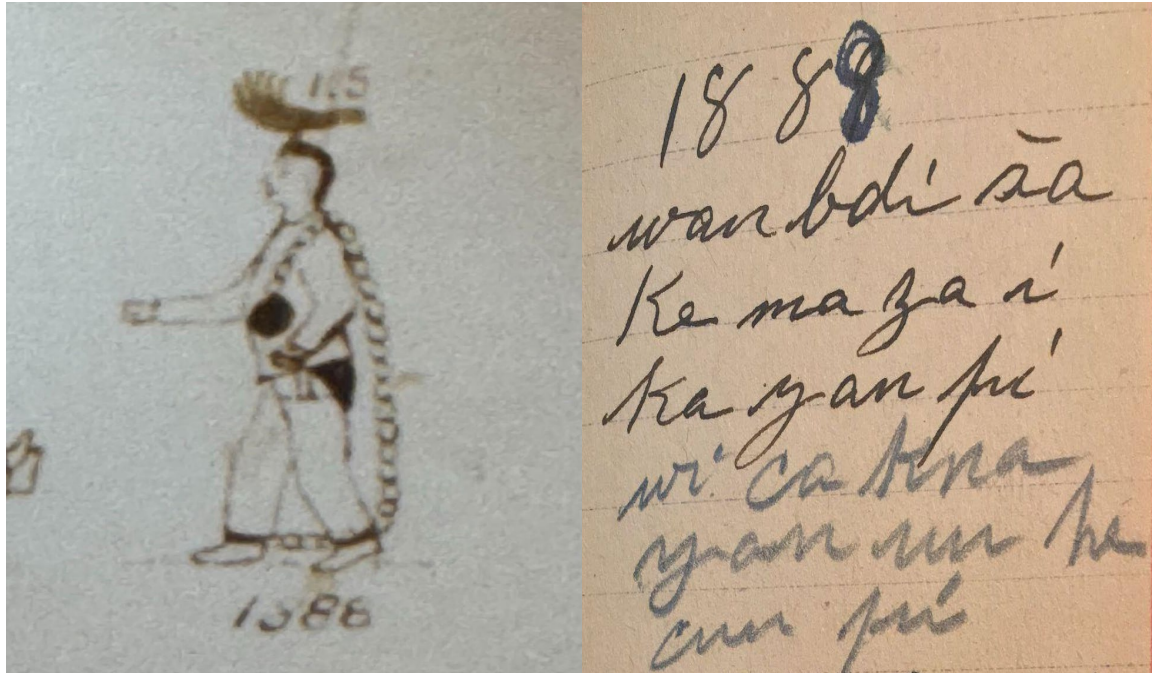 115
1888
1888
wanbdi ša
Ke ma za i
Ka yan pi
wi ca
yan un he
cun pi